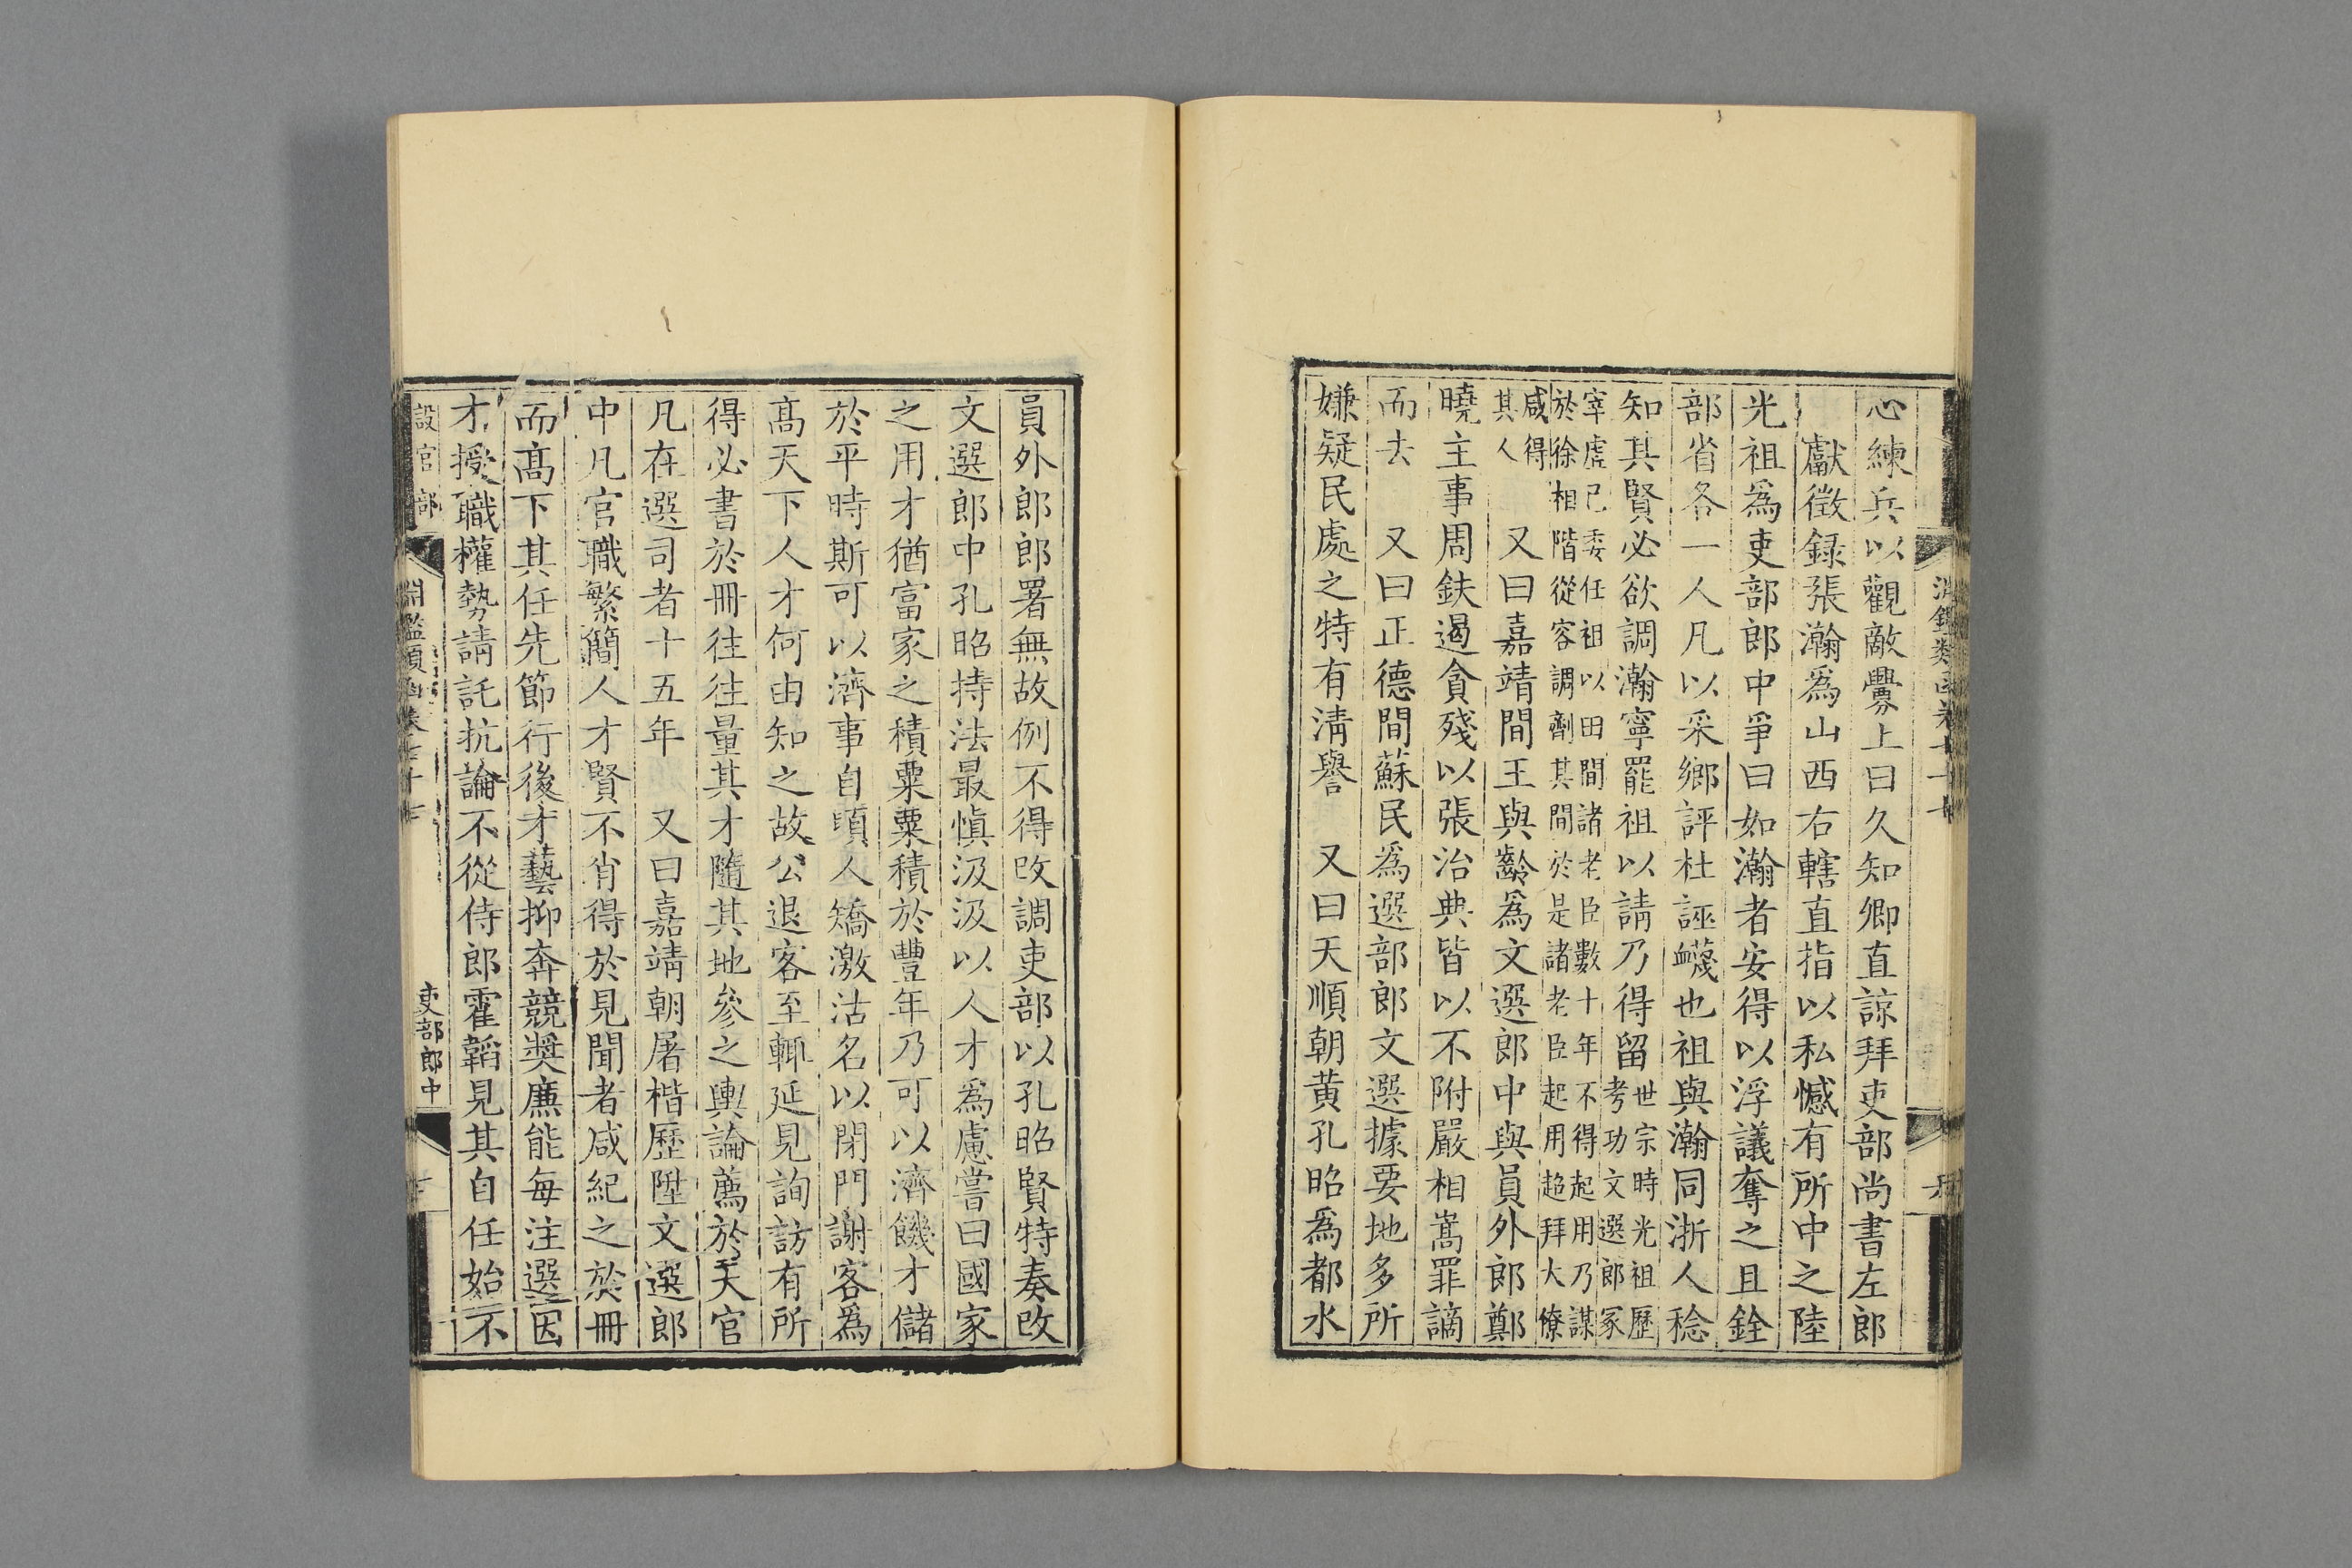 心練兵以觀敵釁上曰久知卿直諒拜吏部尚書左郎
獻徵録張瀚爲山西右轄直指以私憾有所中之陸
光祖爲吏部郎中爭曰如瀚者安得以浮議奪之且銓
部省各一人凡以采鄉評杜誣衊也祖與瀚同浙人稔
知其賢必欲調瀚寧罷祖以請乃得留世宗時光祖歷
考功文選郎冢
宰虚已委任祖以田間諸老臣數十年不得起用乃謀
於徐相階從容調劑其間於是諸老臣起用趋拜大僚
咸得
其人　又曰嘉靖間王與齡爲文選郎中與員外郎鄭
曉主事周鈇遏貪殘以張治典皆以不附嚴相嵩罪謫
而去　又曰正德間蘇民爲選部郎文選據要地多所
嫌疑民處之特有淸譽　又曰天順朝黄孔昭爲都水
員外郎郎署無故例不得改調吏部以孔昭賢特奏改
文選郎中孔昭持法最慎汲汲以人才爲慮嘗曰國家
之用才猶富家之積粟粟積於豐年乃可以濟饑才儲
於平時斯可以濟事自頃人矯激沽名以閉門謝客爲
高天下人才何由知之故公退客至輒延見詢訪有所
得必書於冊往往量其才隨其地參之輿論薦於天官
凡在選司者十五年　又曰嘉靖朝屠楷歷陞文選郎
中凡官職繁簡人才賢不肖得於見聞者咸紀之於冊
而高下其任先節行後才藝抑奔競奬廉能每注選因
才授職權勢請託抗論不從侍郎霍韜見其自任始不
設官部
淵鑑類函卷七十七
吏部郎中